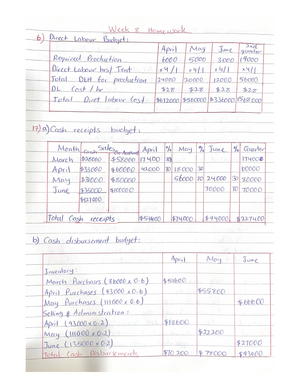 Week 8 Homework
b) Direct Labour Budget:
April May June 2nd quarter
Required Production 6000 5000 3000 14000
Direct Labour hrs/ Tent ×4/1 ×4/1 ×4/1 ×4/1
Total DLH for production 24000 20000 12000 56000
DL Cost / hr $28 $28 $28 $28
Total Direct labour Cost $672000 $560000 $336000 $1568000
17) a) Cash receipts budget:
Month Cash Sales On Account April % May % June % Quarter
March $58000 17400 17400
April 60000
May $80000 56000 70 24000 30 80000
June $35000 $100000 70000 70 70000
Total Cash receipts $74000 $94000 $227400
b) Cash disbursement budget:
April May June
Inventory:
March Purchases (86000 x 0.6) $51600
April Purchases (93000 x 0.6) $55800
May Purchases (111000 x 0.6) $66600
Selling & Administration:
April (93000 x 0.2) $18600
May (111000 x 0.2) $22200
June (135000 x 0.2) $27000
Total Cash Disbursements $70200 $78000 $93600